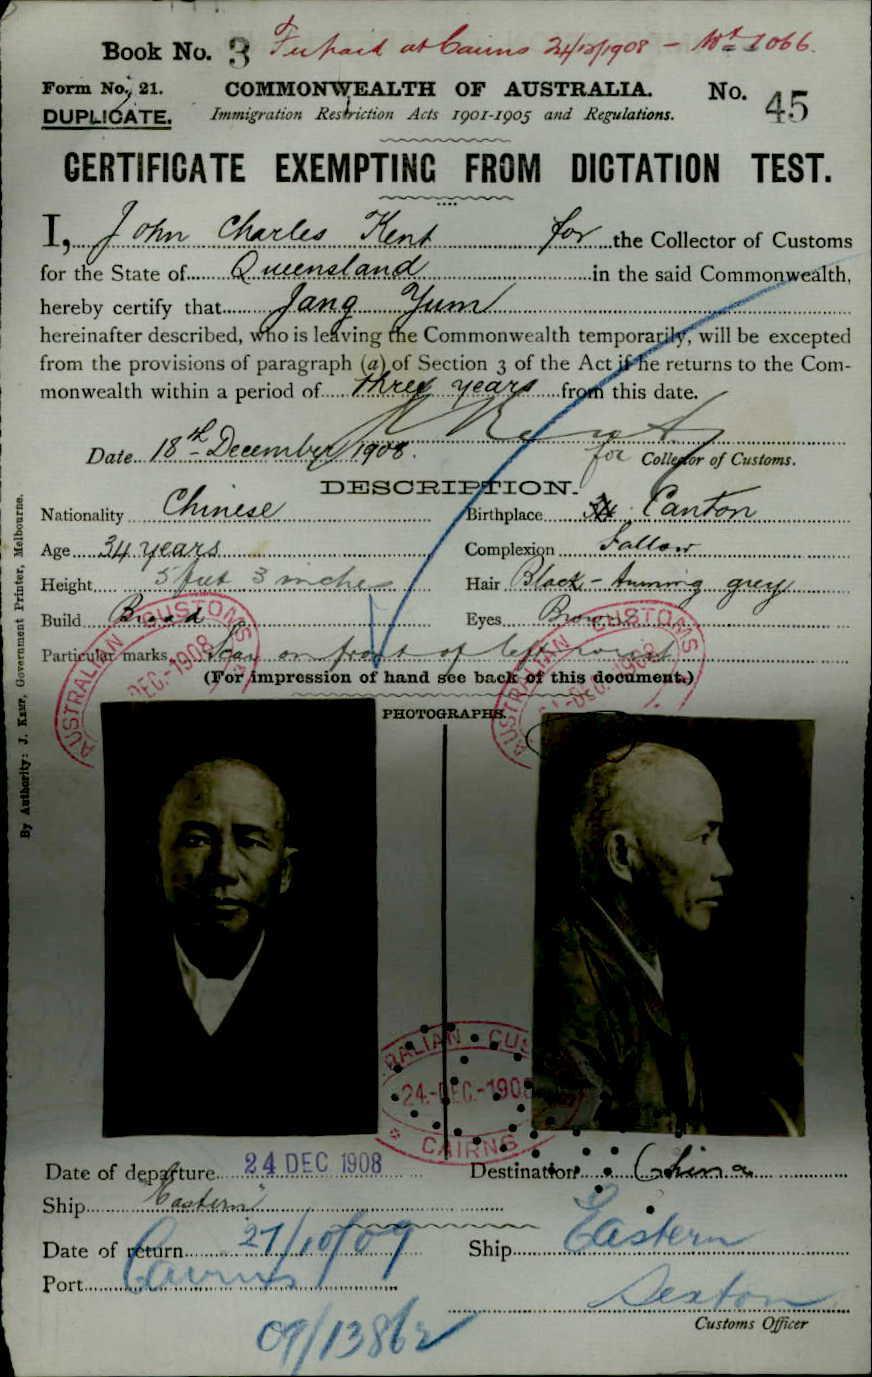 Book No. 3 Fee paid at Cairns 24/12/1908 - No 1066.
Form No. 21. COMMONWEALTH OF AUSTRALIA. No. 45
DUPLICATE. Immigration Restriction Acts 1901-1905 and Regulations.
CERTIFICATE EXEMPTING FROM DICTATION TEST.
I, John Charles Kent for the Collector of Customs
for the State of Queensland in the said Commonwealth,
hereby certify that Jang Yum
hereinafter described, who is leaving the Commonwealth temporarily, will be excepted
from the provisions of paragraph (a) of Section 3 of the Act if he returns to the Com-
monwealth within a period of three years from this date.
Date 18th December 1908. for Collector of Customs.
DESCRIPTION.
Nationality Chinese Birthplace Canton
Age 34 years Complexion Sallow
Height 5 feet 3 inches Hair Black - turning grey
Build Broad Eyes Brown
Particular marks Scar on front of left wrist
(For impression of hand see back of this document.)
PHOTOGRAPHS.
AUSTRALIAN CUSTOMS
DEC.-1908
AUSTRALIAN CUSTOMS
DEC.-1908
RALIAN CUS
24.-DEC.-1908
CAIRNS
Date of departure 24 DEC 1908 Destination China
Ship "Eastern"
Date of return 27/10/09 Ship Eastern
Port Cairns
Sexton
Customs Officer
09/13862
By Authority: J. Kemp, Government Printer, Melbourne.